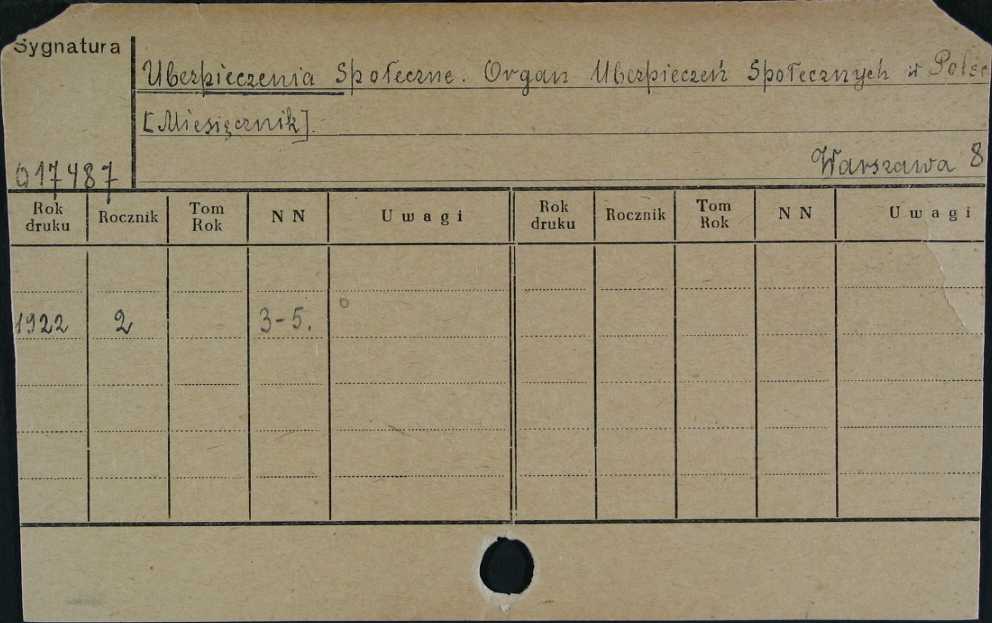 Sygnatura
Ubezpieczenia Społeczne. Organ Ubezpieczeń Społecznych w
[Miesięcznik].
Warszawa 8
017487
Rok druku Rocznik Tom Rok NN Uwagi Rok druku Rocznik Tom Rok NN Uwagi
1922 2 3-5.